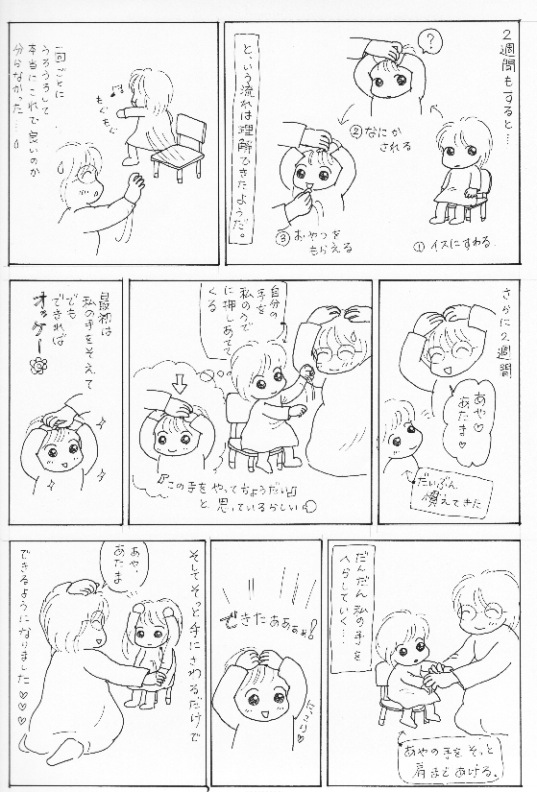 2週間もすると…
?
①イスにすわる
②なにか
される
③おやつを
もらえる
と、いう流れは理解できたようだ。
もぐもぐ
一回ごとに
うろうろして
本当にこれで良いのか
分らなかった…
さらに2週間
あや♡
あたま♡
だいぶん
慣えてきた
自分の
手を
私のうで
に押しあてて
くる
『この手をやってちょうだい』
と思っているらしい
最初は
私の手をそえて
でも
できれば
オッケー
だんだん私の手を
へらしていく…
あやの手をそっと
肩まであげる。
できたあああ!
にっこり♡
そしてそっと手にさわるだけで
あや、
あたま
できるようになりました♡♡♡